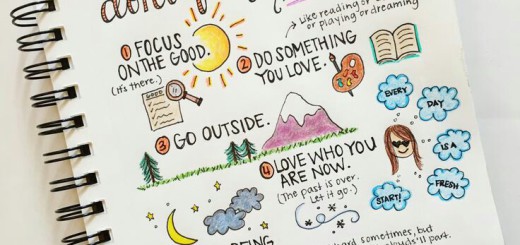 Like reading or
or playing or dreaming
1 FOCUS
ON THE GOOD.
(It's there.)
GOOD
2 DO SOMETHING
YOU LOVE.
3 GO OUTSIDE.
4 LOVE WHO YOU
ARE NOW.
(The past is over.
Let it go.)
EVERY
DAY
IS A
FRESH
START!
BEING
hard sometimes, but
clouds'll part.